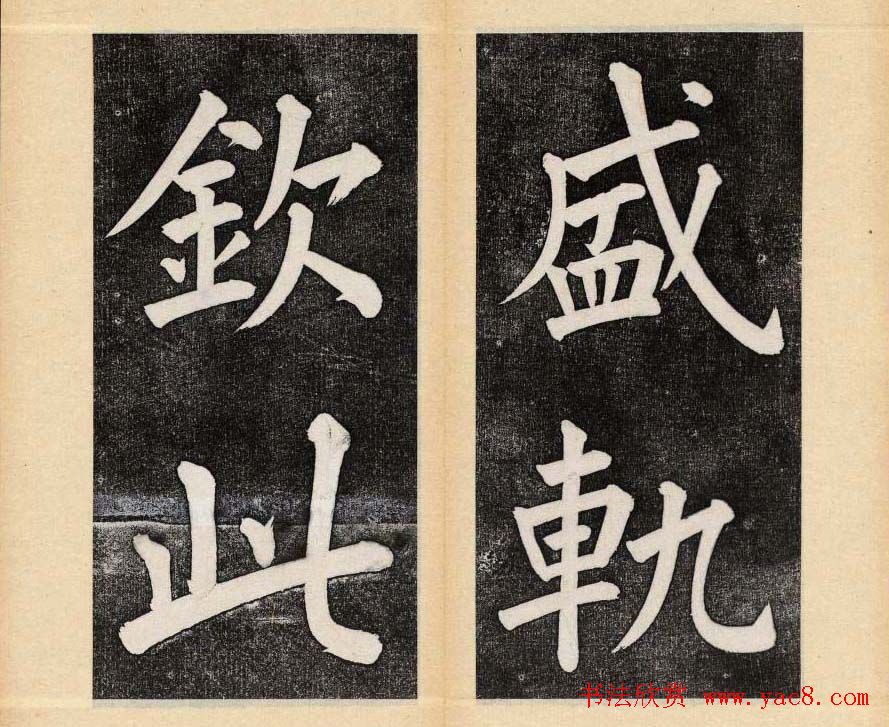 盛軌
欽此
书法欣赏 www.yac8.com